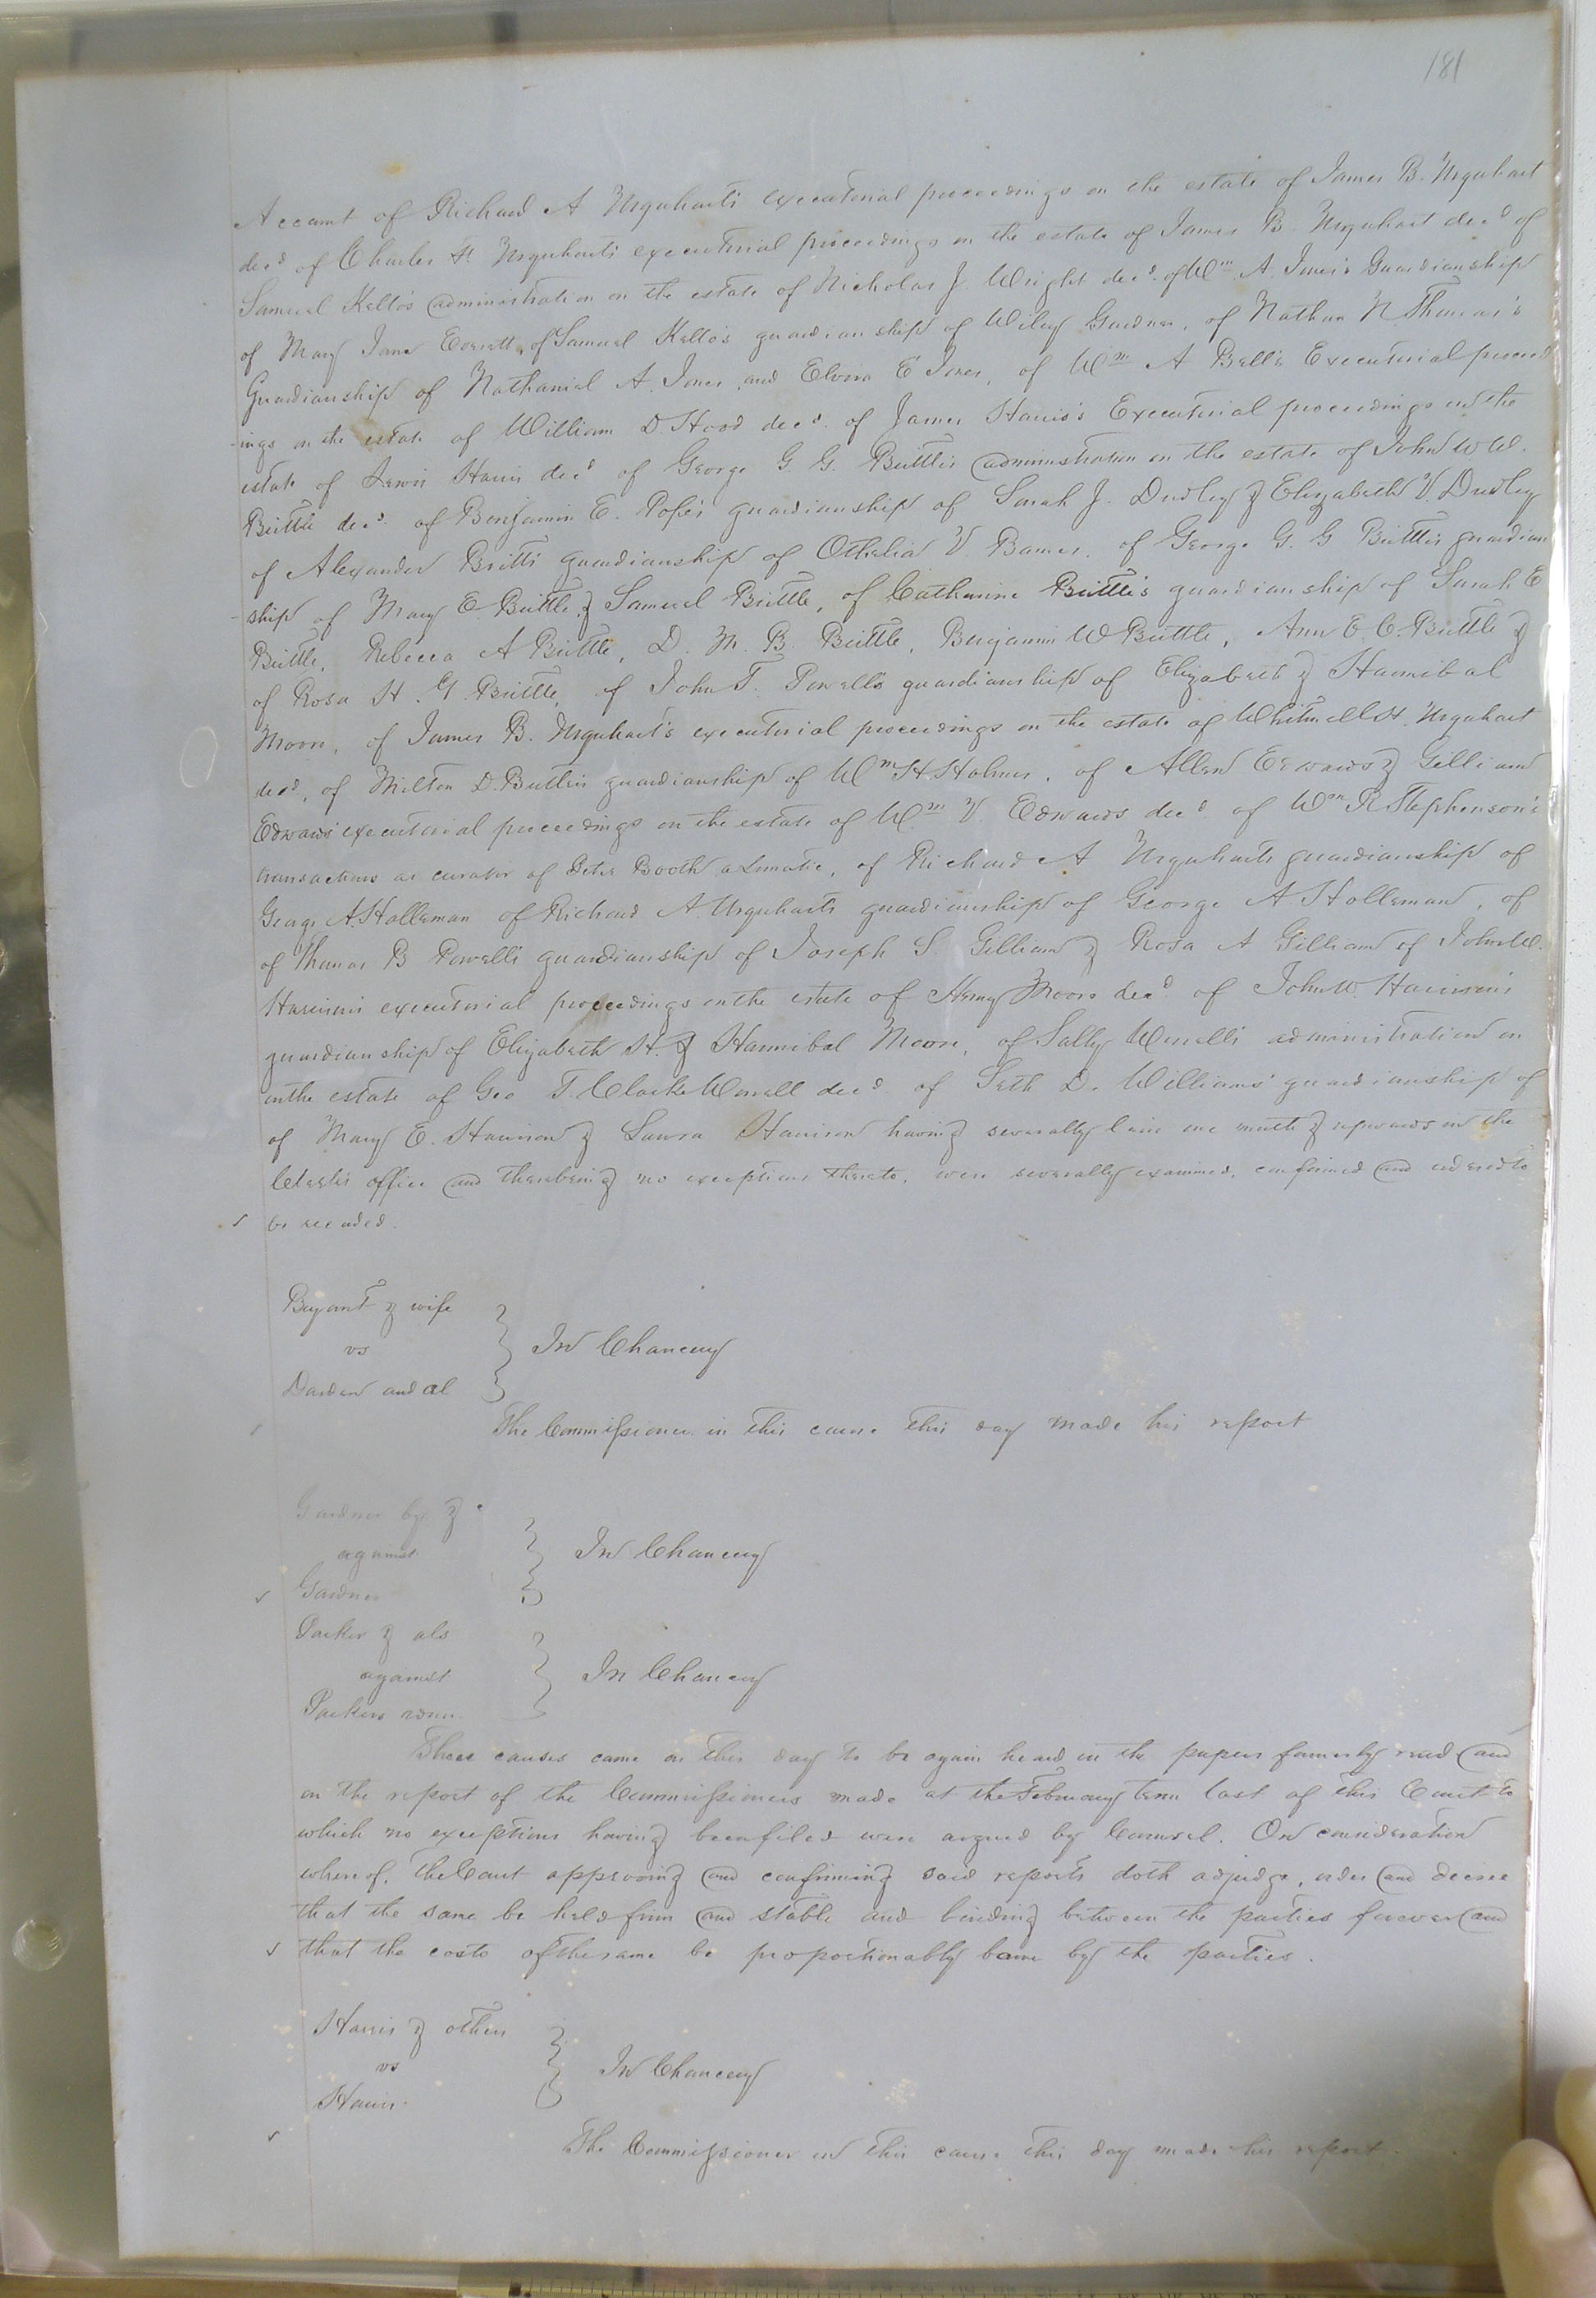 181
Account of Richard A Urquhart's executorial proceedings on the estate of James B. Urquhart
decd of Charles F. Urquhart's executorial proceedings on the estate of James B. Urquhart decd of
Samuel Kello's administration on the estate of Nicholas J. Wright decd. of Wm A. Jones's Guardianship
of Mary Jane Everett, of Samuel Kello's guardianship of Wiley Gardner, of Nathan N Thomas's
Guardianship of Nathanial A. Jones and Elvira E Jones, of Wm A Bell's Executorial proceed
-ings on the estate of William D. Hood decd. of James Harris's Executorial proceedings on the
estate of Lewis Harris decd of George G. G. Brittle's administration on the estate of John W W.
Brittle decd. of Benjamin E. Pope's guardianship of Sarah J. Dudley & Elizabeth V. Dudley
of Alexander Britt's guardianship of Othelia V. Barnes, of George G. G Brittle's guardian
-ship of Mary E. Brittle, & Samuel Brittle, of Catharine Brittle's guardianship of Sarah E
Brittle, Rebecca A Brittle, D. M. B. Brittle, Benjamin W Brittle, Ann E. C. Brittle &
of Rosa H. G. Brittle, of John T. Powell's guardianship of Elizabeth & Hannibal
Moore, of James B. Urquhart's executorial proceedings on the estate of Whitmell H. Urquhart
decd, of Milton D. Butler's guardianship of Wm H. Holmes, of Allen Edwards & Gilliam
Edwards' executorial proceedings on the estate of Wm V. Edwards decd. of Wm R Stephenson's
transactions as curator of Peter Booth a Lunatic, of Richard A Urquharts guardianship of
George A. Holleman of Richard A Urquharts guardianship of George A. Holleman, of
of Thomas B Powell's guardianship of Joseph S. Gilliam & Rosa A Gilliam of John W.
Harrison's executorial proceedings on the estate of Henry Moore decd. of John W. Harrison's
guardianship of Elizabeth H. & Hannibal Moore, of Sally Worrell's administration on
on the estate of Geo T. Clarke Worrell decd. of Seth D. Williams' guardianship of
of Mary E. Harrison & Laura Harrison having severally lain one month & upwards in the
Clerk's office and there being no exceptions thereto, were severally examined, confirmed and ordered to
be recorded.
Bryant & wife
vs
In Chancery
Darden and al
The Commissioner in this cause this day made his report
Gardner by &c
against
In Chancery
Gardner
Parker & als
against
In Chancery
Parkers
These causes came on this day to be again heard on the papers formerly read and
on the report of the Commissioners made at the February term last of this Court to
which no exceptions having been filed were argued by Counsel. On consideration
whereof, the Court approving and confirming said reports doth adjudge, order and decree
that the same be held firm and stable and binding between the parties forever and
that the costs of the same be proportionably borne by the parties.
Harris & others
vs
In Chancery
Harris.
The Commissioner in this cause this day made his report.